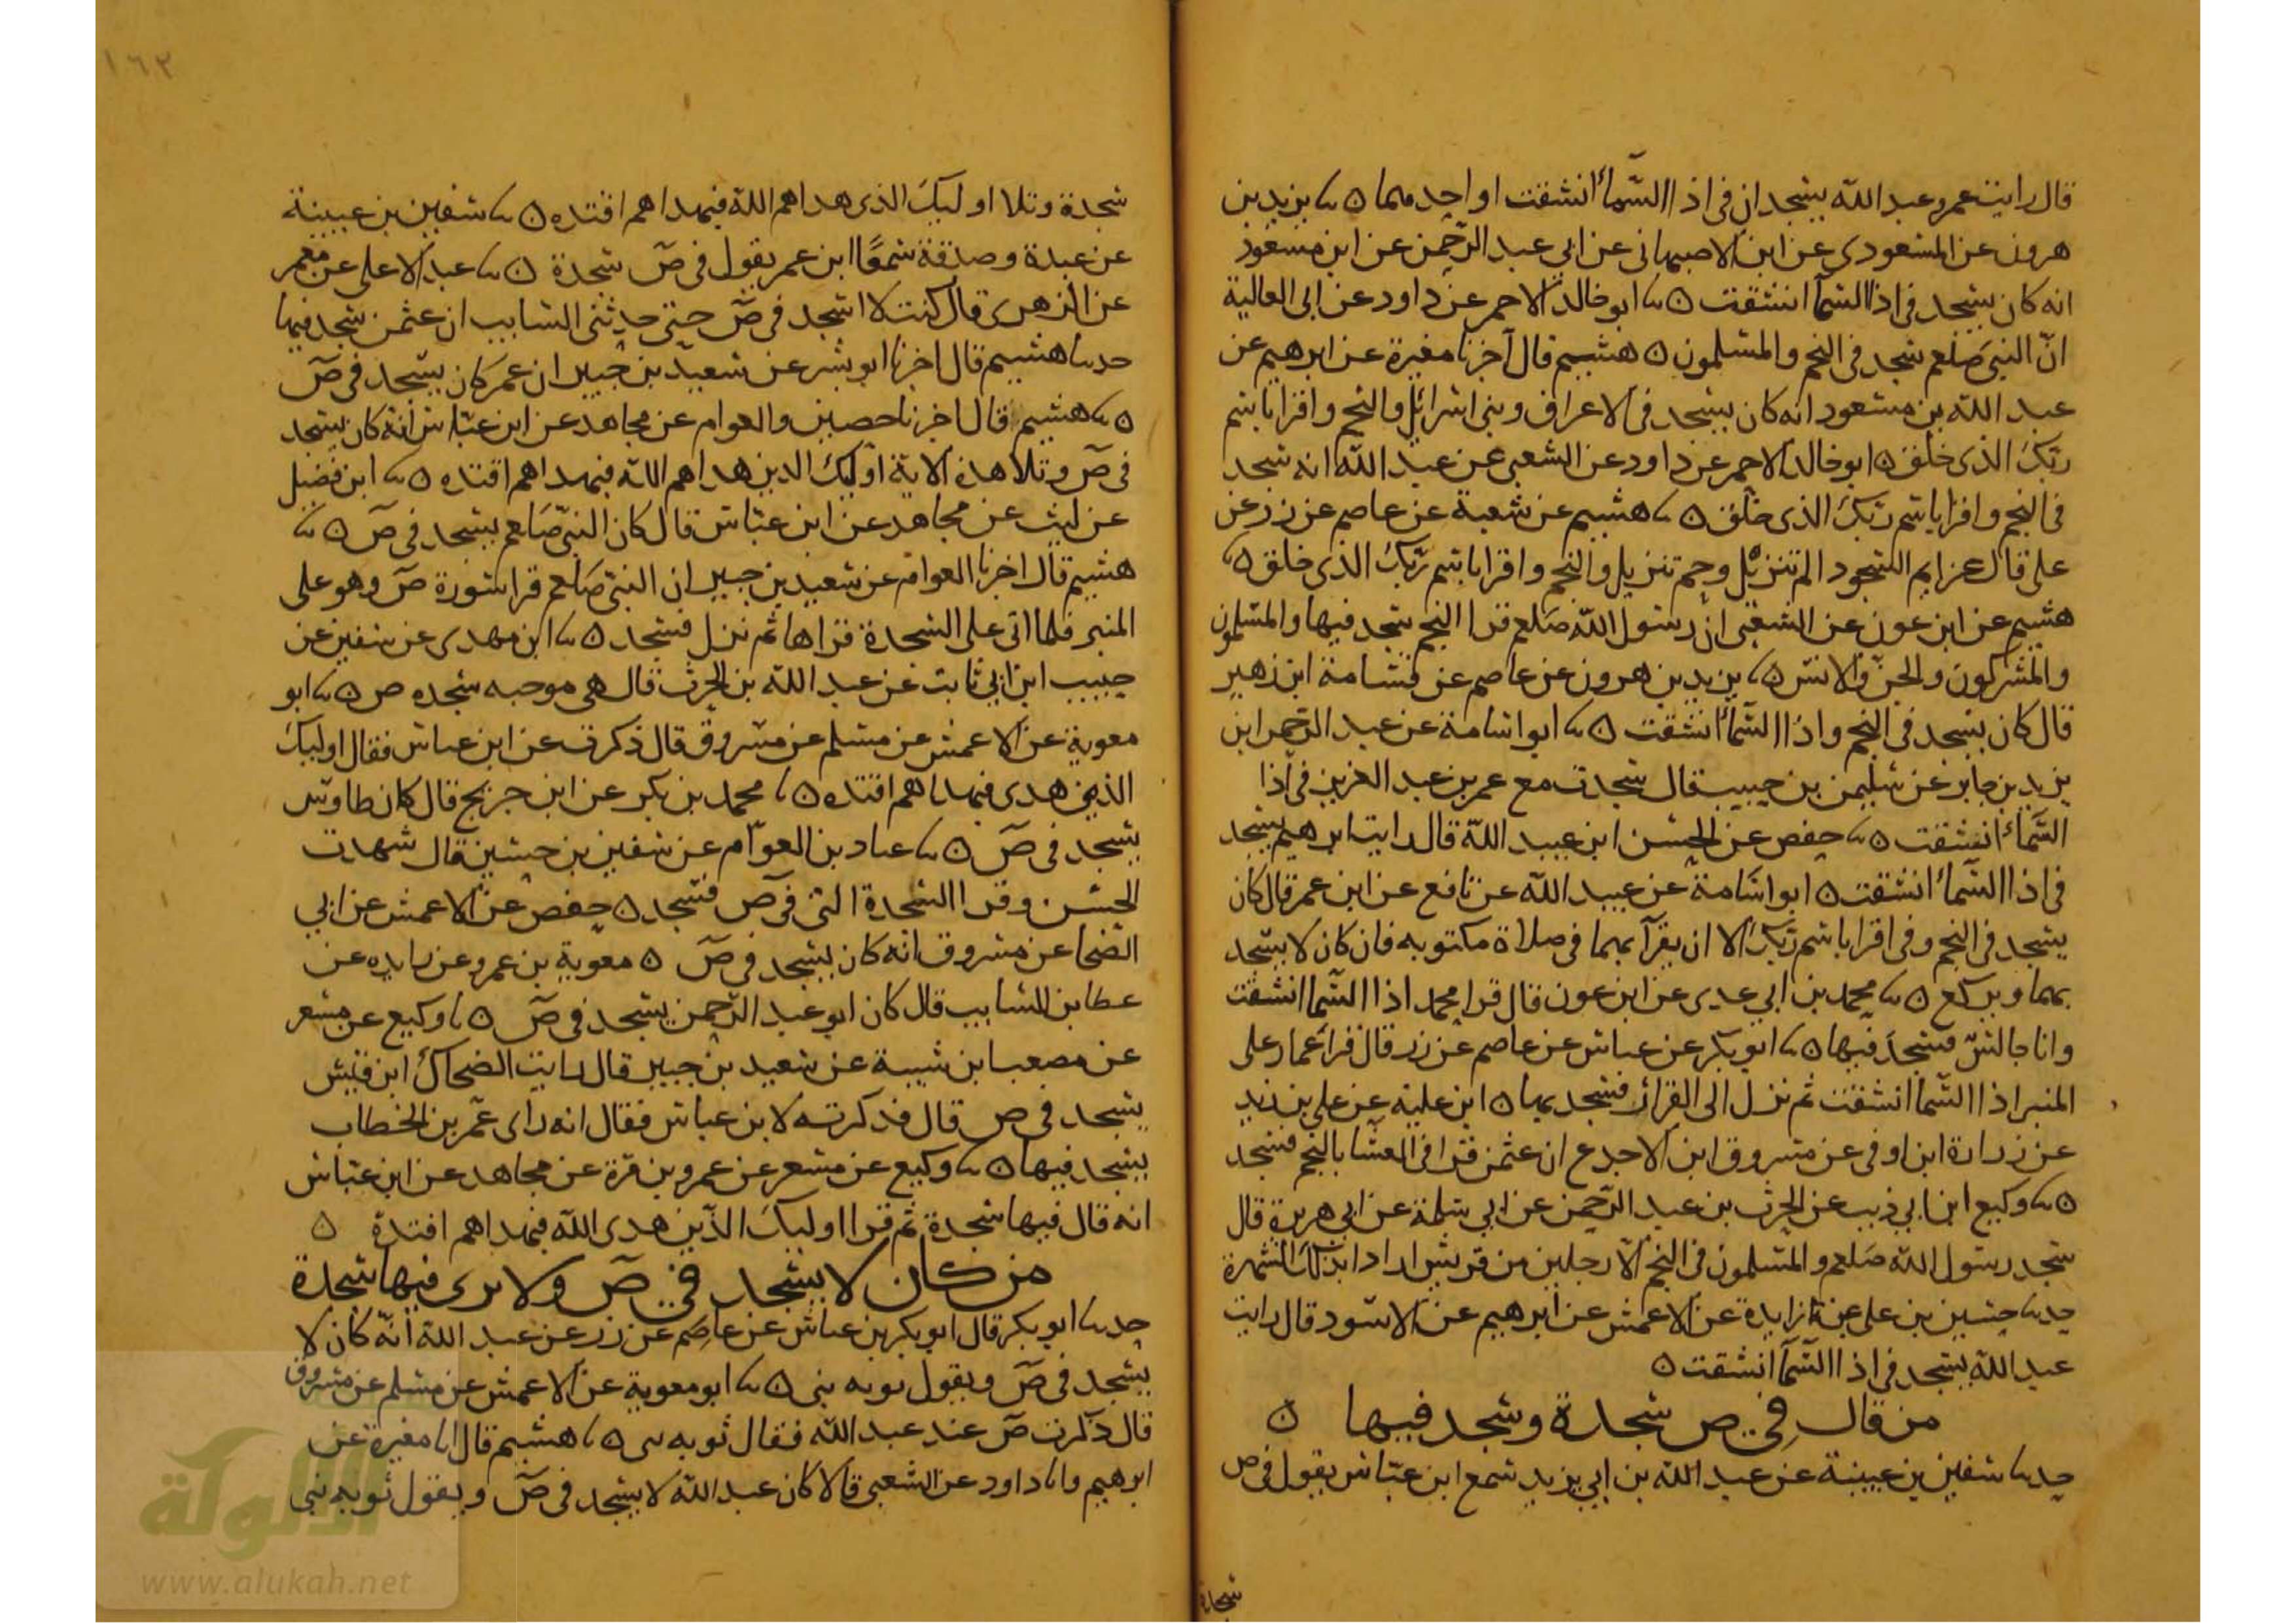 قال رايت عمر وعبد الله يسجدان في اذا السماء انشقت او احدهما ○ ثنا يزيد بن
هرون عن المسعودي عن ابن الاصبهاني عن ابي عبد الرحمن عن ابن مسعود
انه كان يسجد في اذا السمآ انشقت ○ ثنا ابو خالد الاحمر عن داود عن ابي العالية
انّ النبي صلعم سجد في النجم والمسلمون ○ هشيم قال اخبرنا مغيرة عن ابرهيم عن
عبد الله بن مسعود انه كان يسجد في الاعراف وبني اسرائل والنجم واقرا باسم
ربك الذي خلق ○ ابو خالد الاحمر عن داود عن الشعبي عن عبد الله انه سجد
في النجم واقرا باسم ربك الذي خلق ○ ثنا هشيم عن شعبة عن عاصم عن زر عن
علي قال عزايم السجود الم تنزيل وحم تنزيل والنجم واقرا باسم ربك الذي خلق ○ ثنا
هشيم عن ابن عون عن الشعبي ان رسول الله صلعم قرا النجم سجد فيها والمسلمون
والمشركون والجن والانس ○ ثنا يزيد بن هرون عن عاصم عن قسامة ابن زهير
قال كان يسجد في النجم واذا السمآ انشقت ○ ثنا ابو اسامة عن عبد الرحمن ابن
يزيد بن جابر عن سليمن بن حبيب قال سجدت مع عمر بن عبد العزيز في اذا
السماء انشقت ○ ثنا حفص عن الحسن ابن عبيد الله قال رايت ابرهيم يسجد
في اذا السماء انشقت ○ ابو اسامة عن عبيد الله عن نافع عن ابن عمر قال كان
يسجد في النجم وفي اقرا باسم ربك الا ان يقرآ بهما في صلاة مكتوبه فان كان لا يسجد
بهما ويركع ○ ثنا محمد بن ابي عدي عن ابن عون قال قرا محمد اذا السمآ انشقت
وانا جالس فسجد فيها ○ ثنا ابو بكر عن عباس عن عاصم عن زر قال قرا عمار على
المنبر اذا السمآ انشقت ثم نزل الى القرار فسجد بها ○ ابن علية عن علي بن زيد
عن زرارة ابن اوفى عن مسروق ابن الاجدع ان عثمن قرا في العشا بالنجم فسجد
○ ثنا وكيع ابن ابي ذيب عن الحرث بن عبد الرحمن عن ابي سلمة عن ابي هريرة قال
سجد رسول الله صلعم والمسلمون في النجم الا رجلين من قريش ارادا بذلك الشهرة
حدثنا حسين بن علي عن زايدة عن الاعمش عن ابرهيم عن الاسود قال رايت
عبد الله يسجد في اذا السمآ انشقت ○
من قال في ص سجدة وسجد فيها ○
حدثنا سفين بن عيينة عن عبد الله بن ابي يزيد سمع ابن عباس يقول في ص
سجدة
١٦٢
سجدة وتلا اوليك الذي هداهم الله فبهداهم اقتده ○ ثنا سفين بن عيينة
عن عبدة وصدقة سمعا ابن عمر يقول في ص سجدة ○ ثنا عبد الاعلى عن معمر
عن الزهري قال كنت لا اسجد في ص حتى حدثني السايب ان عثمن سجد فيها
حدثنا هشيم قال اخبرنا ابو بشر عن سعيد بن جبير ان عمر كان يسجد في ص
○ ثنا هشيم قال اخبرنا حصين والعوام عن مجاهد عن ابن عباس انه كان يسجد
في ص وتلا هذه الاية اوليك الذين هداهم الله فبهداهم اقتده ○ ثنا ابن فضيل
عن ليث عن مجاهد عن ابن عباس قال كان النبي صلعم يسجد في ص ○ ثنا
هشيم قال اخبرنا العوام عن سعيد بن جبير ان النبي صلعم قرا سورة ص وهو على
المنبر فلما اتى على السجدة قراها ثم نزل فسجد ○ ثنا ابن مهدي عن سفين عن
حبيب ابن ابي ثابت عن عبد الله بن الحرث قال هي موجبه سجده ص ○ ثنا ابو
معوية عن الاعمش عن مسلم عن مسروق قال ذكرت عن ابن عباس فقال اوليك
الذين هدى فبهداهم اقتده ○ ثنا محمد بن بكر عن ابن جريج قال كان طاوس
يسجد في ص ○ ثنا عباد بن العوام عن سفين بن حسين قال شهدت
الحسن وقرا السجدة التي في ص فسجد ○ حفص عن الاعمش عن ابي
الضحا عن مسروق انه كان يسجد في ص ○ معوية بن عمرو عن زايده عن
عطا بن السايب قال كان ابو عبد الرحمن يسجد في ص ○ ثنا وكيع عن مسعر
عن مصعب ابن شيبة عن سعيد بن جبير قال رايت الضحاك ابن قيس
يسجد في ص قال فذكرته لابن عباس فقال انه راى عمر بن الخطاب
يسجد فيها ○ ثنا وكيع عن مسعر عن عمرو بن مرة عن مجاهد عن ابن عباس
انه قال فيها سجدة ثم قرا اوليك الذين هدى الله فبهداهم اقتدة ○
من كان لا يسجد في ص ولا يرى فيها سجدة
حدثنا ابو بكر قال ابو بكر بن عياش عن عاصم عن زر عن عبد الله انه كان لا
يسجد في ص ويقول توبه نبي ○ ثنا ابو معوية عن الاعمش عن مسلم عن مسروق
قال ذكرت ص عند عبد الله فقال توبه نبي ○ ثنا هشيم قال انا مغيرة عن
ابرهيم وانا داود عن الشعبي قالا كان عبد الله لا يسجد في ص ويقول توبه نبي
الألوكة
www.alukah.net